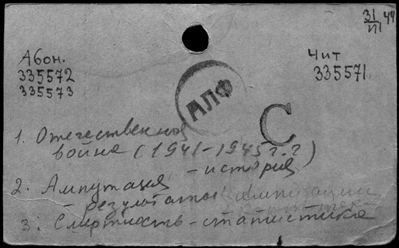 31/VII 44
Абон.
335572
335573
Чит
335571
АЛФ
С
1. Отечественная
война (1941-1945 г.г.)
- история
2. Ампутация
- результаты ампутации
3. Смертность - статистика